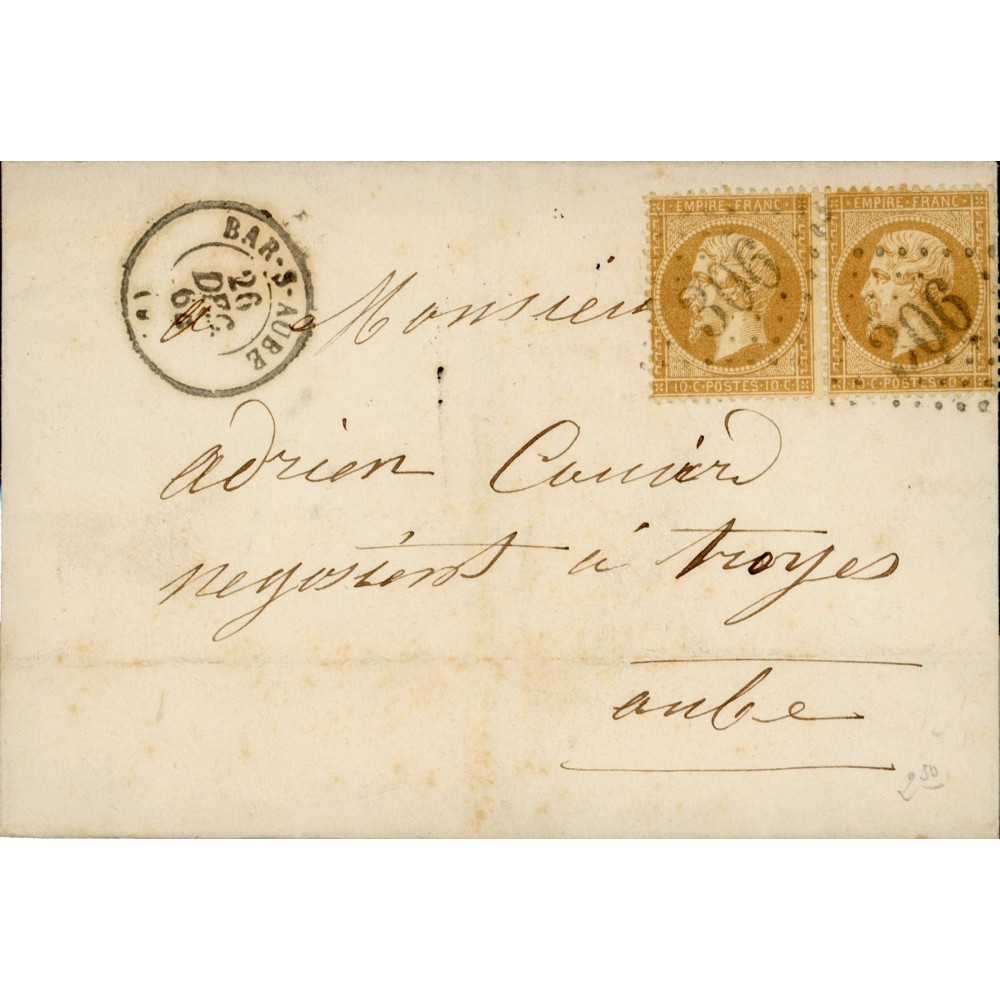 BAR-S-AUBE
26
DEC.
(9)
EMPIRE·FRANC·
10·C·POSTES·10·C·
EMPIRE·FRANC·
10·C·POSTES·10·C·
a Monsieur
adrien
negosient à troyes
aube
2 50